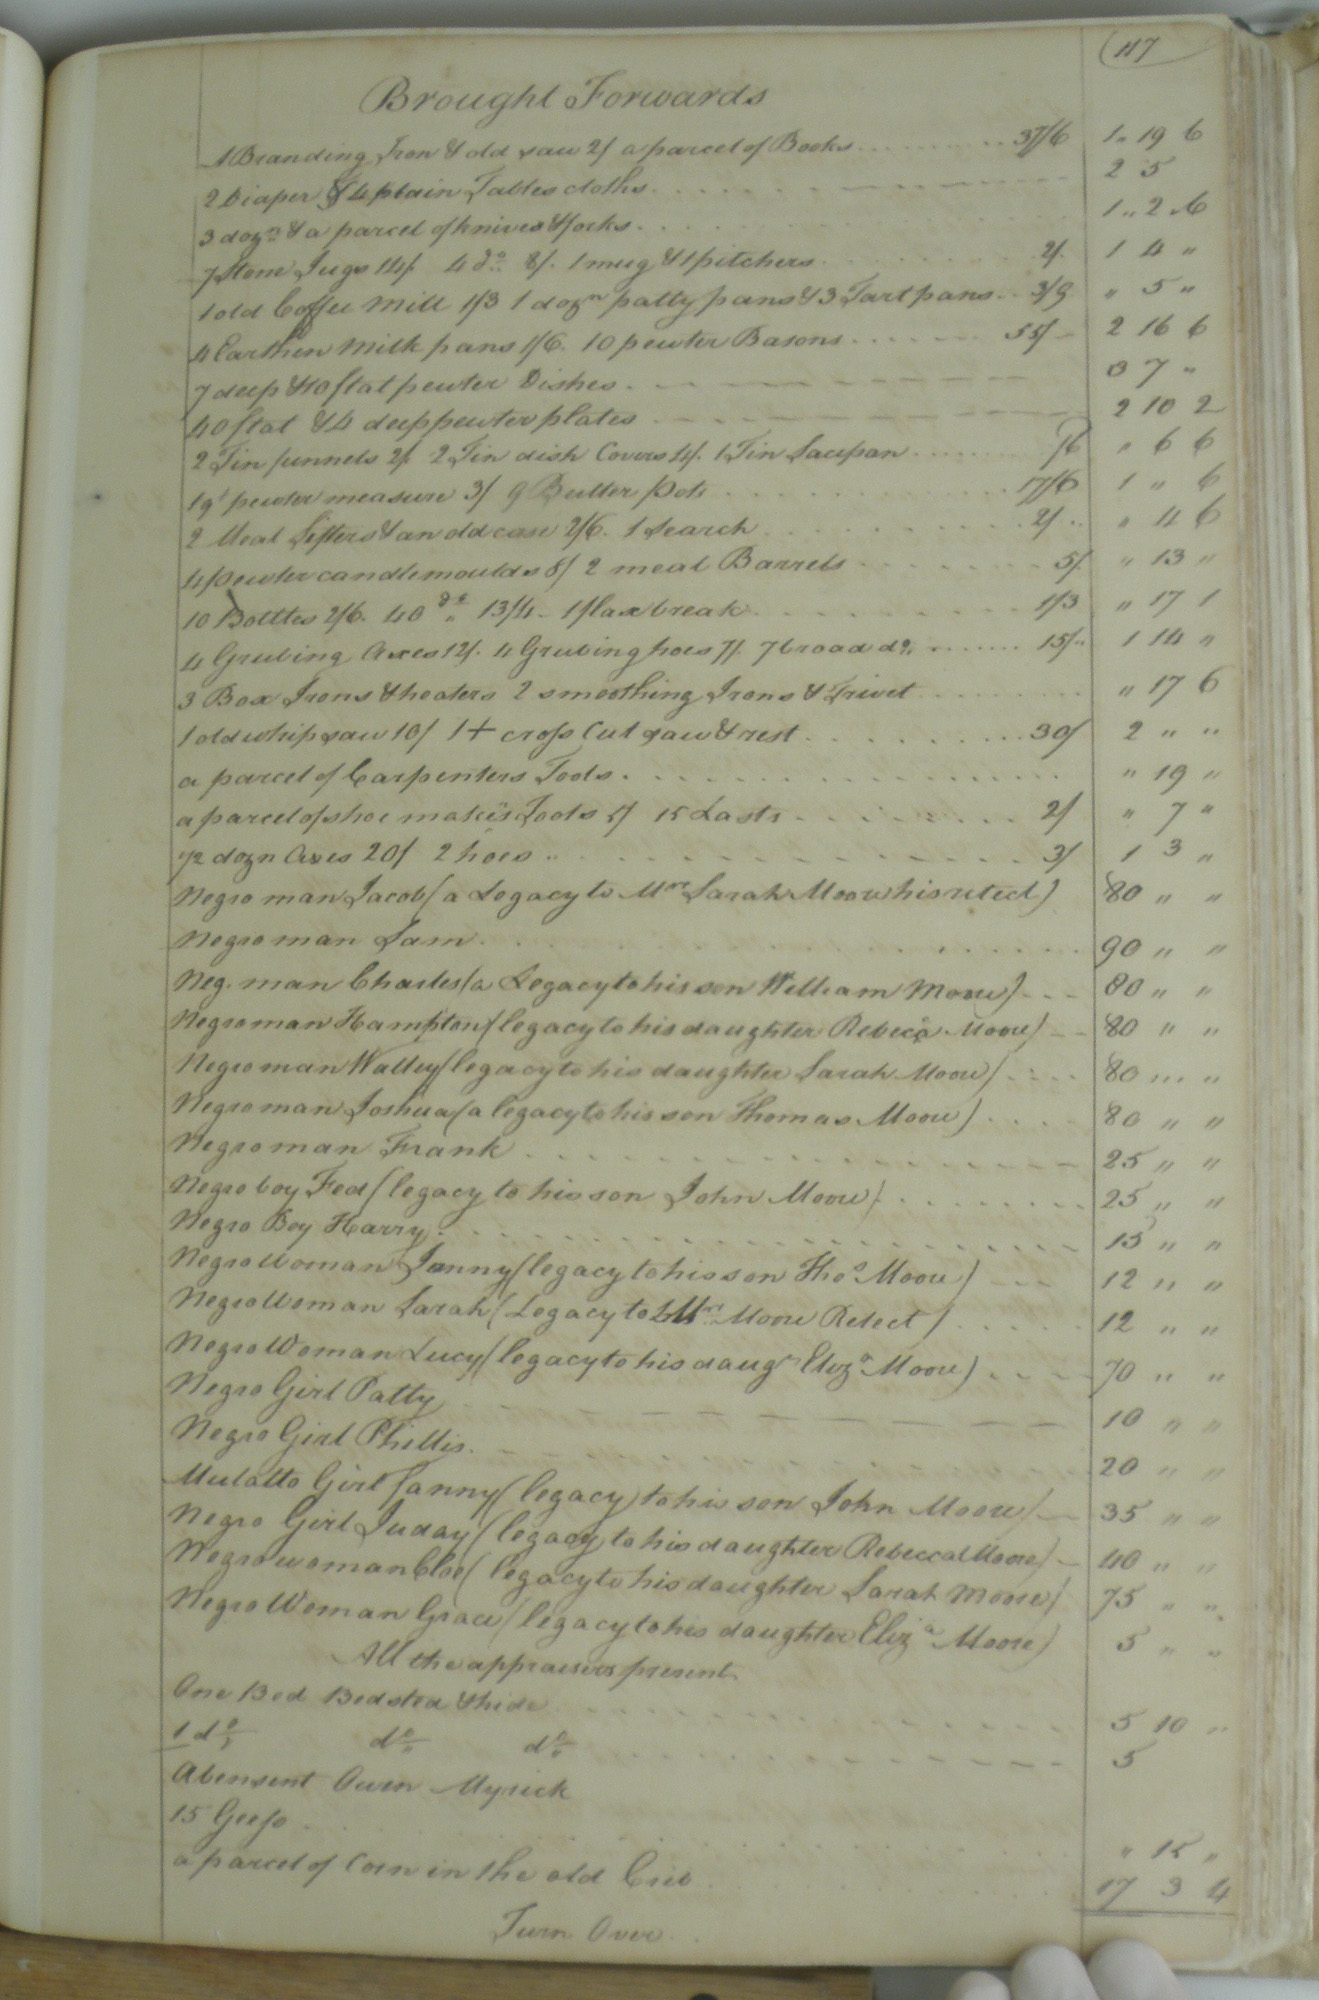 117
Brought Forwards
1 Branding Iron & old saw 2/ a parcel of Books 37/6 1 19 6
2 Diaper & 4 plain Tables cloths 2 5
3 dozn & a parcel of knives & forks 1 2 6
7 Stone Jugs 14/. 4 do 8/. 1 mug & 1 pitchers 2/. 1 4 "
1 old Coffee Mill 1/3 1 dozn patty pans & 3 Tart pans 3/9 " 5 "
4 Earthen Milk pans 1/6. 10 pewter Basons 55/- 2 16 6
7 deep & 10 flat pewter Dishes 3 7 "
40 flat & 4 deep pewter plates 2 10 2
2 Tin funnels 2/. 2 Tin dish Covers 4/. 1 Tin Saupan /6 " 6 6
1 qt pewter measure 3/ 9 Butter Pots 17/6 1 " 6
2 Meal Sifters & an old case 2/6. 1 Search 2/ " 4 6
4 pewter candlemoulds 8/ 2 meal Barrels 5/. " 13 "
10 Bottles 2/6. 40 do 13/4 - 1 flax break 1/3 " 17 1
4 Grubing Axes 12/. 4 Grubing hoes 7/. 7 broad do 15/ 1 14 "
3 Box Irons & heaters 2 smoothing Irons & Trivet " 17 6
1 old whip saw 10/ 1 + cross Cut saw & rest 30/ 2 " "
a parcel of Carpenters Tools " 19 "
a parcel of shoe makers Tools 5/ 15 Lasts 2/ " 7 "
1/2 dozn Axes 20/ 2 hoes 3/ 1 3 "
Negro man Jacob (a Legacy to Mrs Sarah Moore his relect) 80 " "
Negro man Sam 90 " "
Neg. man Charles (a Legacy to his son William Moore) 80 " "
Negro man Hampton (legacy to his daughter Rebeca Moore) 80 " "
Negro man Walley (legacy to his daughter Sarah Moore) 80 " "
Negro man Joshua (a legacy to his son Thomas Moore) 80 " "
Negro man Frank 25 " "
Negro boy Fed (legacy to his son John Moore) 25 " "
Negro Boy Harry 15 " "
Negro Woman Janny (legacy to his son Thos Moore) 12 " "
Negro Woman Sarah (Legacy to Mrs Moore Relect) 12 " "
Negro Woman Lucy (legacy to his daugr Eliza Moore) 70 " "
Negro Girl Patty 10 " "
Negro Girl Phillis 20 " "
Mulatto Girl fanny (legacy) to his son John Moore) 35 " "
Negro Girl Juday (legacy to his daughter Rebecca Moore) 40 " "
Negro woman Cloe (legacy to his daughter Sarah Moore) 75 " "
Negro Woman Grace (legacy to his daughter Eliza Moore) 5 " "
All the appraisers present
One Bed Bedsted & hide 5 10 "
1 do do do 5
Abensent Owen Myrick
15 Geese " 15 "
a parcel of Corn in the old Crib 17 3 4
Turn Over